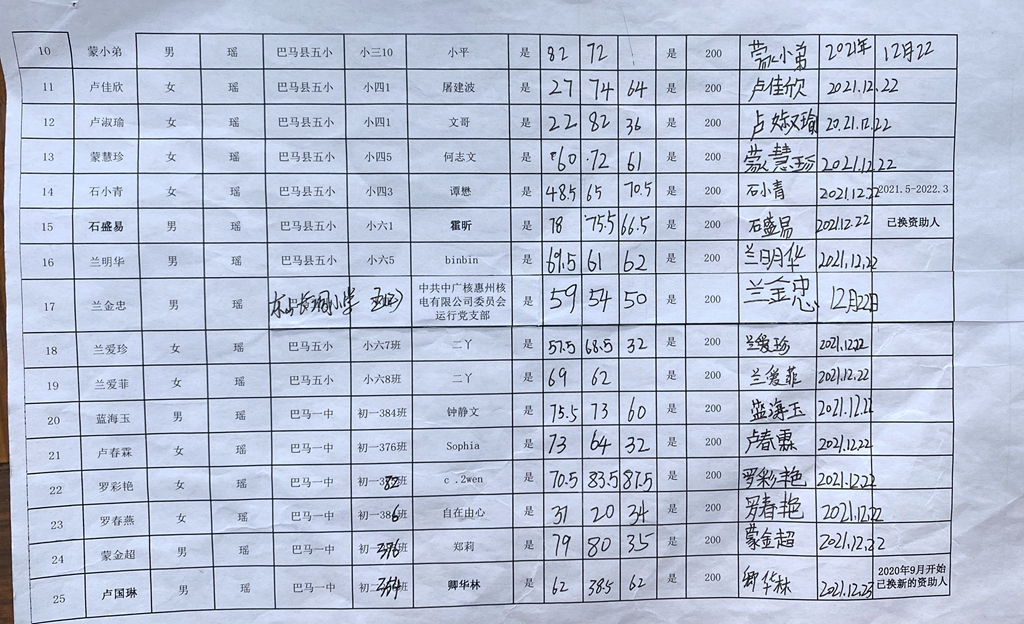 10 蒙小弟 男 瑶 巴马县五小 小三10 小平 是 82 72 是 200 蒙小弟 2021年 12月22
11 卢佳欣 女 瑶 巴马县五小 小四1 屠建波 是 27 74 64 是 200 卢佳欣 2021.12.22
12 卢淑瑜 女 瑶 巴马县五小 小四1 文哥 是 22 82 36 是 200 卢淑瑜 2021.12.22
13 蒙慧珍 女 瑶 巴马县五小 小四5 何志文 是 60 72 61 是 200 蒙慧珍 2021.12.22
14 石小青 女 瑶 巴马县五小 小四3 谭懋 是 48.5 65 70.5 是 200 石小青 2021.12.22 2021.5-2022.3
15 石盛易 男 瑶 巴马县五小 小六1 霍昕 是 78 75.5 66.5 是 200 石盛易 2021.12.22 已换资助人
16 兰明华 男 瑶 巴马县五小 小六5 binbin 是 69.5 61 62 是 200 兰明华 2021.12.22
17 兰金忠 男 瑶 中共中广核惠州核
电有限公司委员会
运行党支部 是 59 54 50 是 200 兰金忠 12月22日
18 兰爱珍 女 瑶 巴马五小 小六7班 二丫 是 57.5 68.5 32 是 200 兰爱珍 2021.12.22
19 兰爱菲 女 瑶 巴马五小 小六8班 二丫 是 69 62 是 200 兰爱菲 2021.12.22
20 蓝海玉 男 瑶 巴马一中 初一384班 钟静文 是 75.5 73 60 是 200 蓝海玉 2021.12.22
21 卢春霖 女 瑶 巴马一中 初一376班 Sophia 是 73 64 32 是 200 卢春霖 2021.12.22
22 罗彩艳 女 瑶 巴马一中 初一382班 c .2wen 是 70.5 83.5 87.5 是 200 罗彩艳 2021.12.22
23 罗春燕 女 瑶 巴马一中 初一386班 自在由心 是 31 20 34 是 200 罗春艳 2021.12.22
24 蒙金超 男 瑶 巴马一中 初一376班 郑莉 是 79 80 35 是 200 蒙金超 2021.12.22
25 卢国琳 男 瑶 巴马一中 初一364班 卿华林 是 62 38.5 62 是 200 卿华林 2021.12.23 2020年9月开始
已换新的资助人